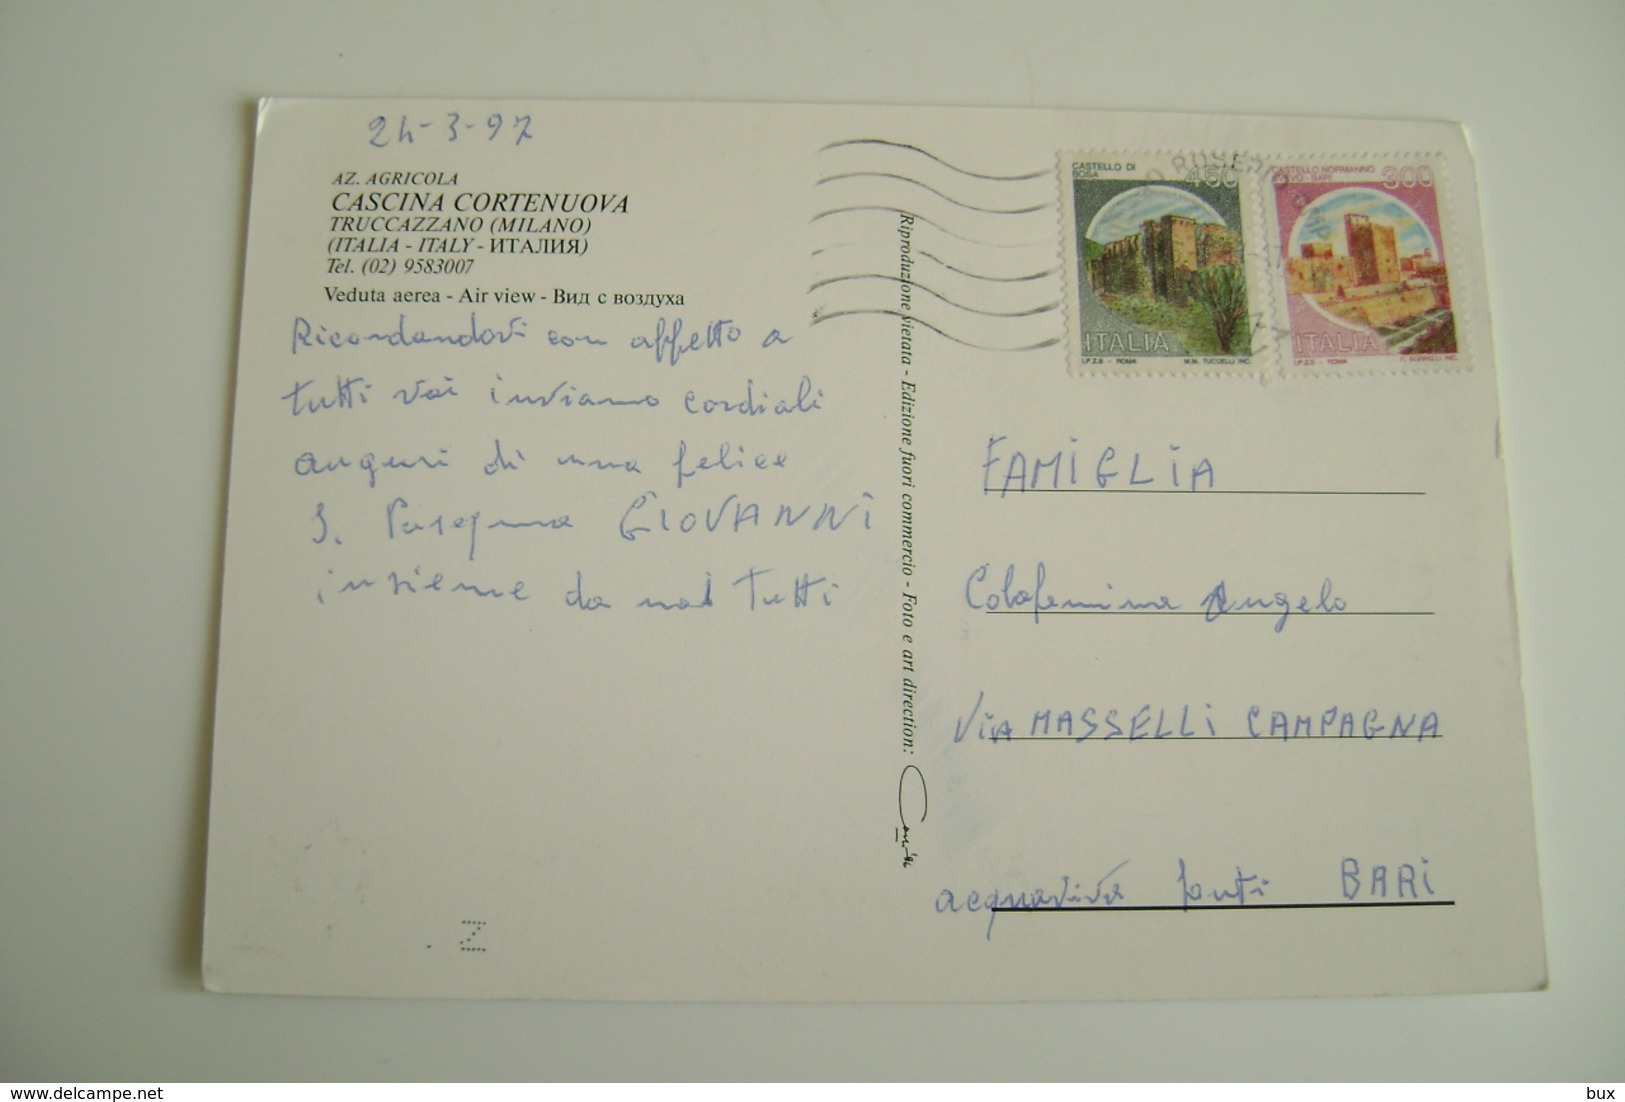 24-3-97
AZ. AGRICOLA
CASCINA CORTENUOVA
TRUCCAZZANO (MILANO)
(ITALIA - ITALY - ИТАЛИЯ)
Tel. (02) 9583007
Veduta aerea - Air view - Вид с воздуха
Ricordandovi con affetto a
tutti voi inviamo cordiali
auguri di una felice
S. Pasqua GIOVANNI
insieme da noi Tutti
Riproduzione vietata - Edizione fuori commercio - Foto e art direction:
CASTELLO DI
BOSA
450
ITALIA
I.P.Z.S - ROMA
M.M. TUCCELLI INC.
CASTELLO NORMANNO
SVEVO - BARI
300
ITALIA
I.P.Z.S - ROMA
FAMIGLIA
Colafemina Angelo
Via MASSELLI CAMPAGNA
acquaviva fonti BARI
Z
https://www.delcampe.net
bux